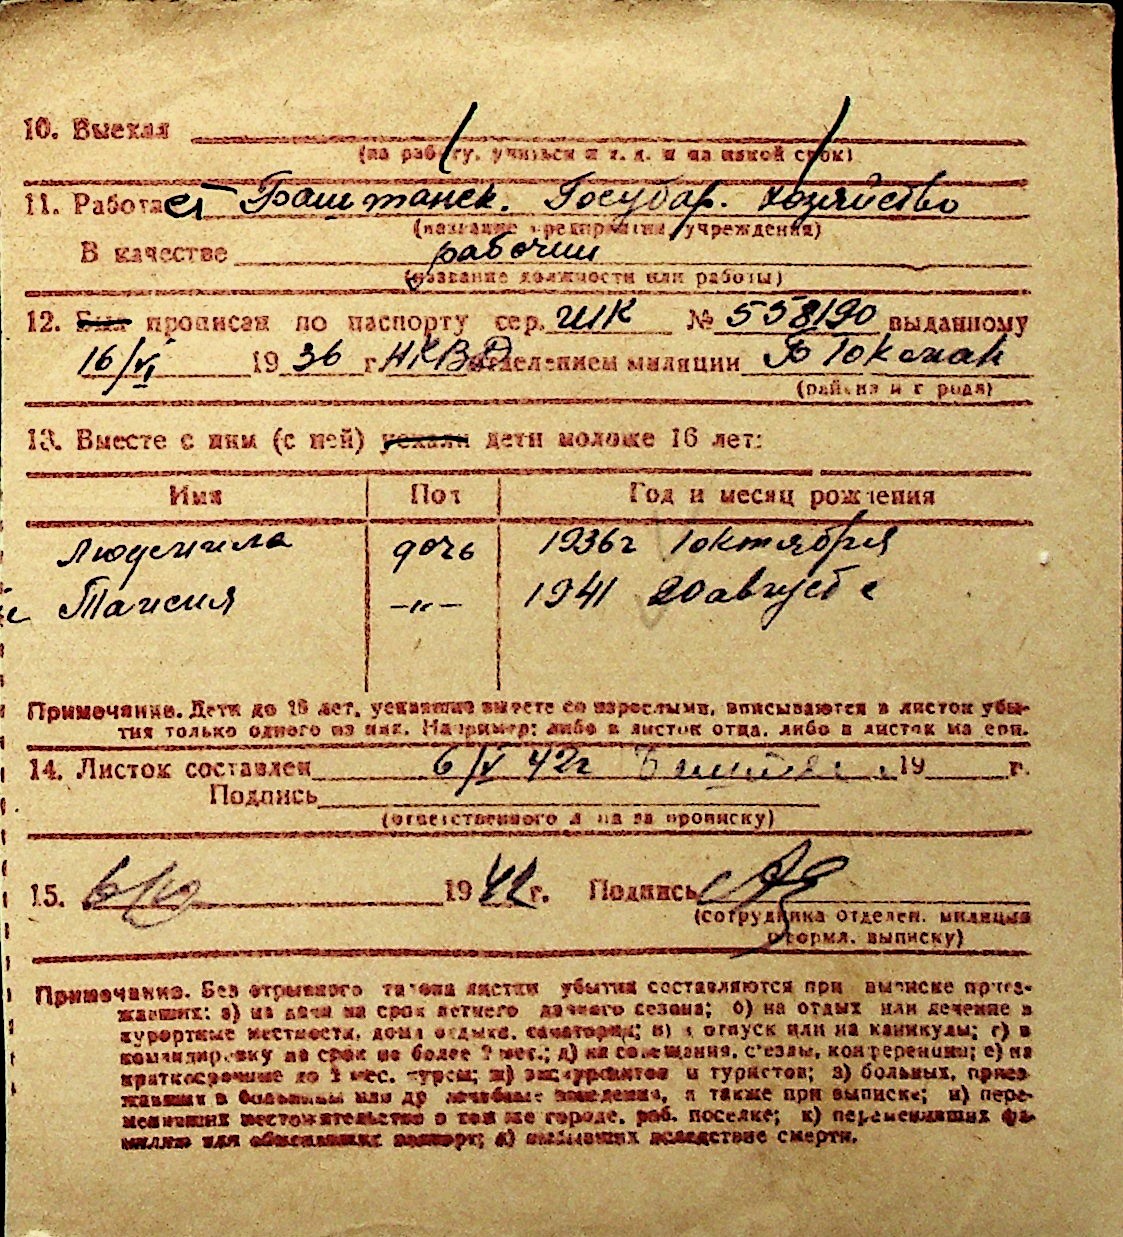 10. Выехал
(на работу, учиться и т. д. и на какой срок)
11. Работает Баштанск. Государ. хозяйство
(название предприятия, учреждения)
В качестве рабочий
(название должности или работы)
12. Был прописан по паспорту сер. ШК № 558190 выданному
16/VI 1936 г. НКВД отделением милиции Б Токмак
(района и города)
13. Вместе с ним (с ней) уехали дети моложе 16 лет:
Имя Пол Год и месяц рождения
Людмила дочь 1936г 1 октября
Таисия -"- 1941 20 августа
Примечание. Дети до 16 лет, уехавшие вместе со взрослыми, вписываются в листок убы-
тия только одного из них. Например: либо в листок отца, либо в листок матери.
14. Листок составлен 6/V 42г 19 г.
Подпись
(ответственного лица за прописку)
15. 1942 г. Подпись
(сотрудника отделен. милиции
оформл. выписку)
Примечание. Без отрывного талона листки убытия составляются при выписке приез-
жавших: а) на дачи на срок летнего дачного сезона; б) на отдых или лечение в
курортные местности, дома отдыха, санатории; в) в отпуск или на каникулы; г) в
командировку на срок не более 2 мес.; д) на совещания, с'езды, конференции; е) на
краткосрочные до 3 мес. курсы; ж) экскурсантов и туристов; з) больных, приез-
жавших в больницы или др лечебные заведения, а также при выписке; и) пере-
менивших местожительство в том же городе, раб. поселке; к) переменивших фа-
милию или обменявших паспорт; л) выбывших вследствие смерти.